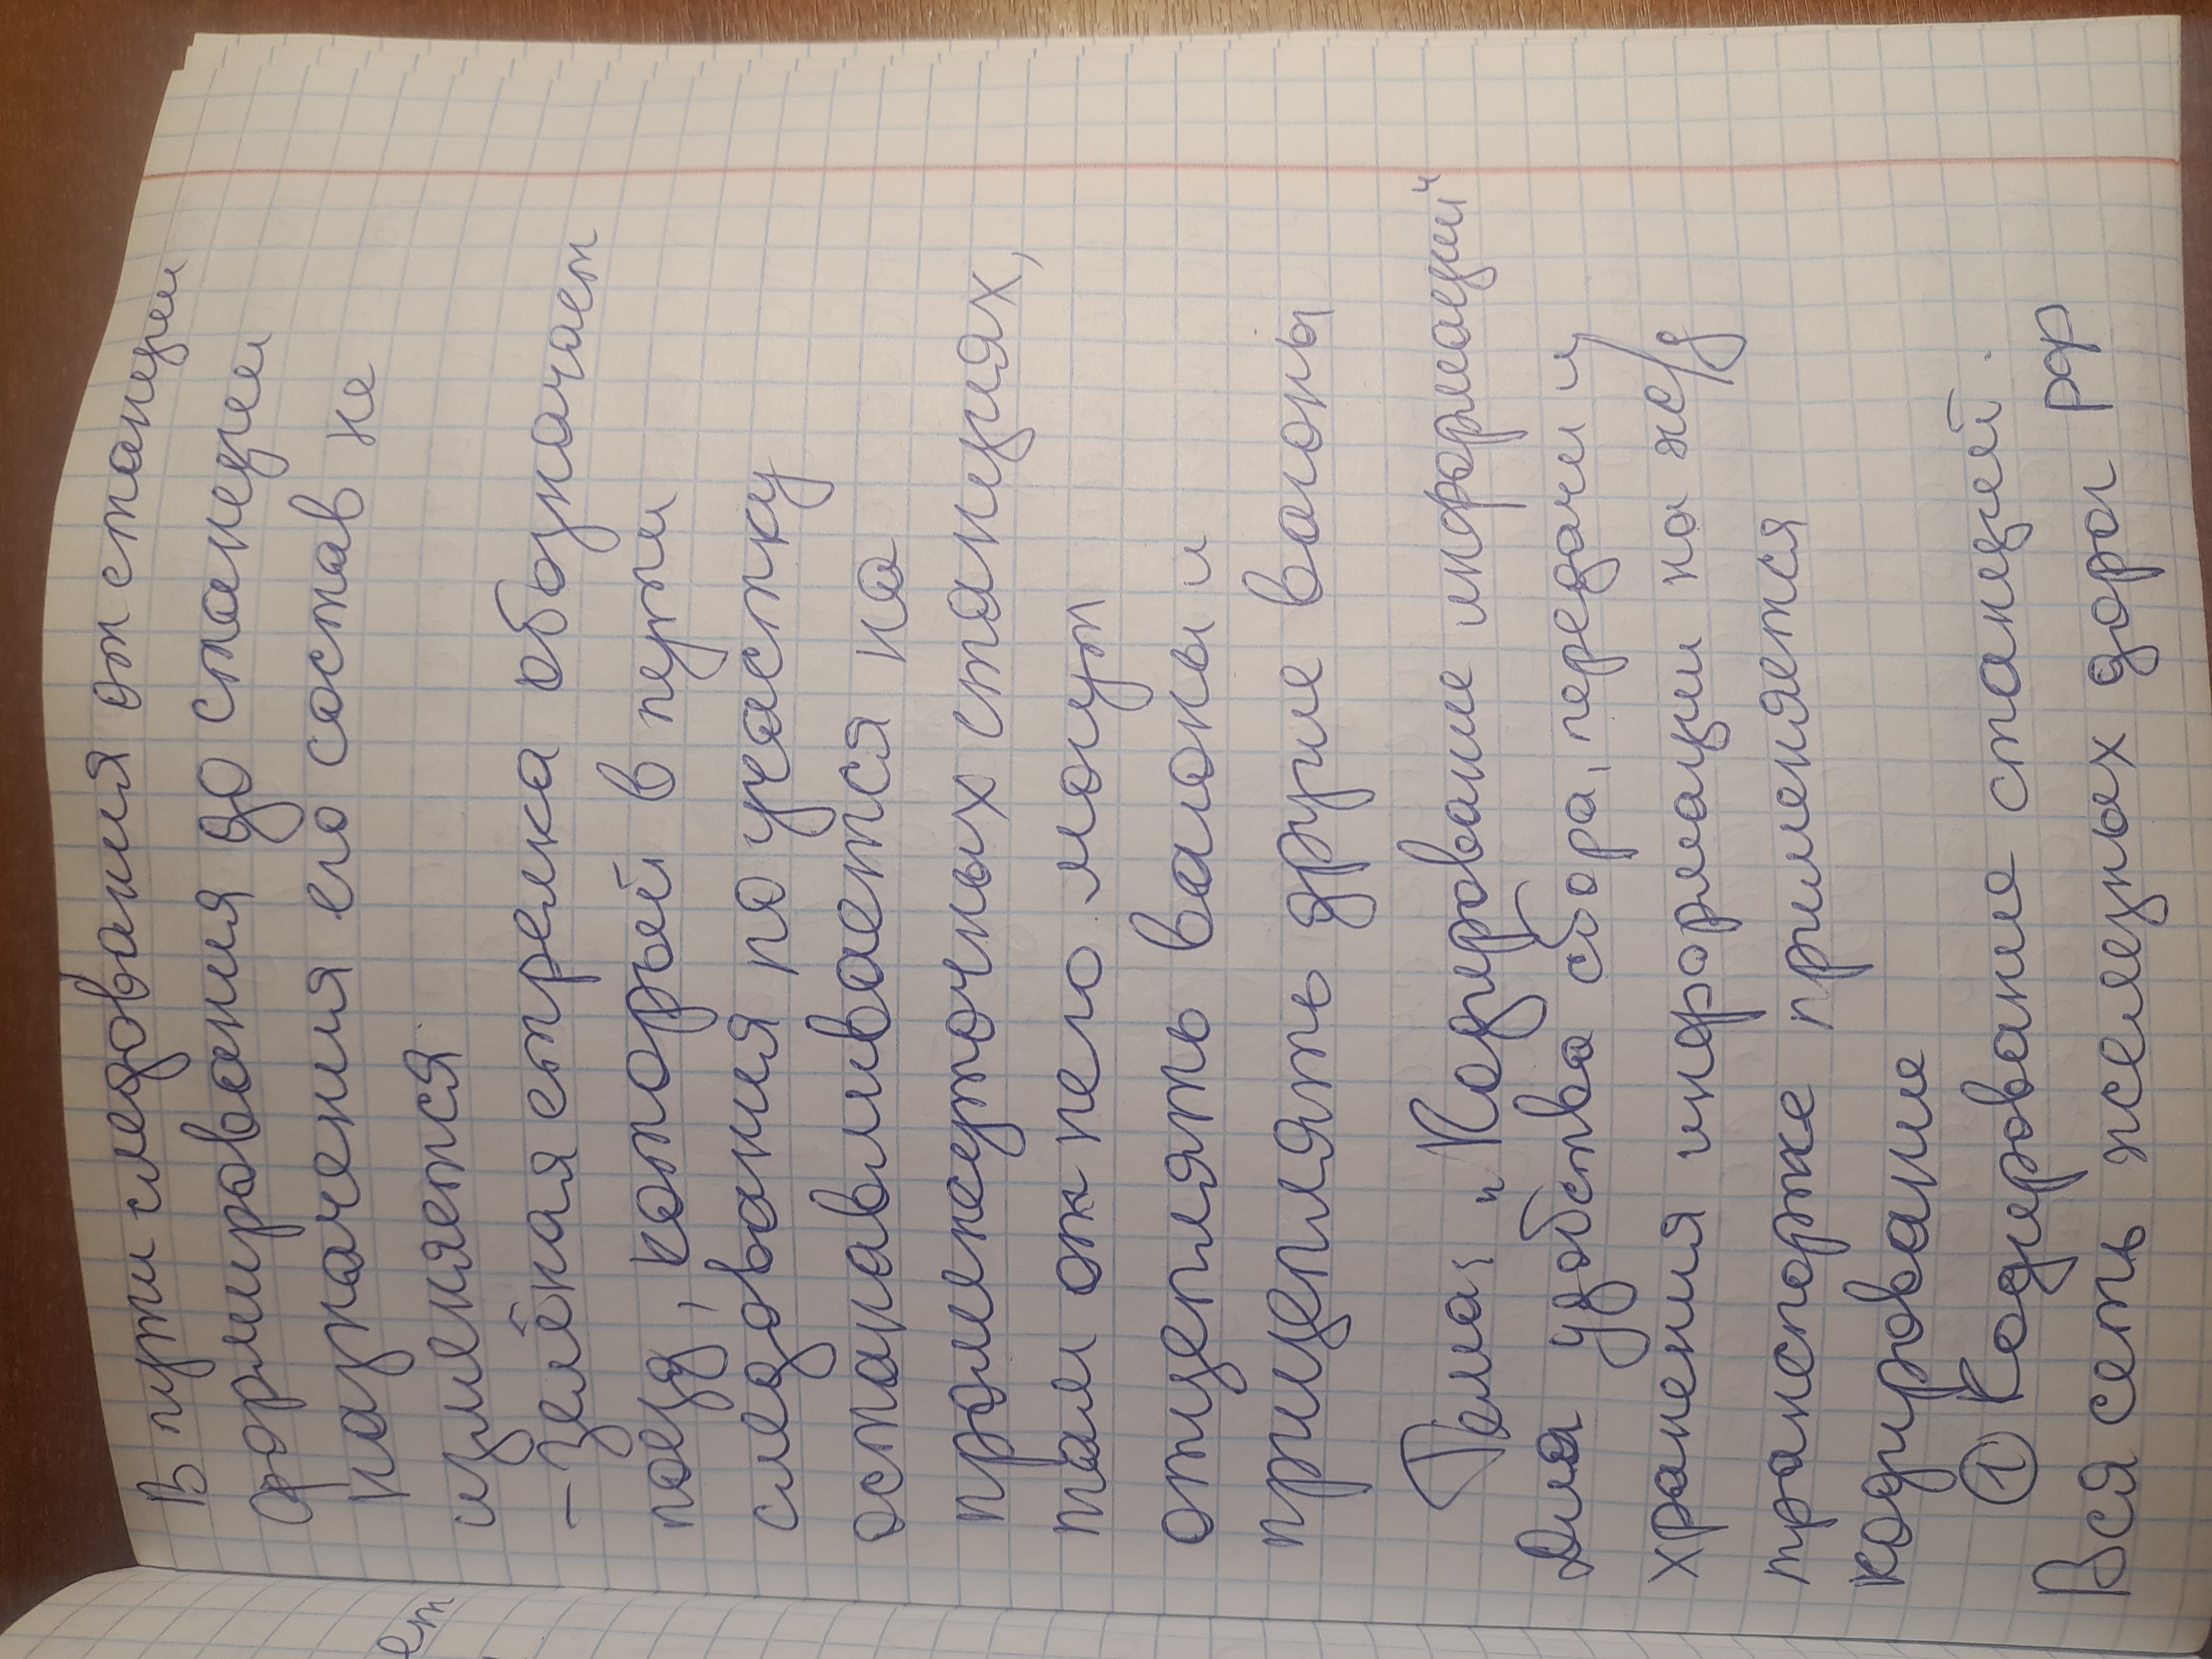 В пути следования от станции
формирования до станции
назначения его состав не
изменяется.
- зелёная стрелка обозначает
поезд, который в пути
следования по участку
останавливается на
промежуточных станциях,
там от него могут
отцеплять вагоны и
прицеплять другие вагоны
Тема: „Кодирование информаций"
Для удобства сбора, передачи и
хранения информации на ж/д
транспорте применяется
кодирование
① Кодирование станций.
Вся сеть железных дорог РФ
ет